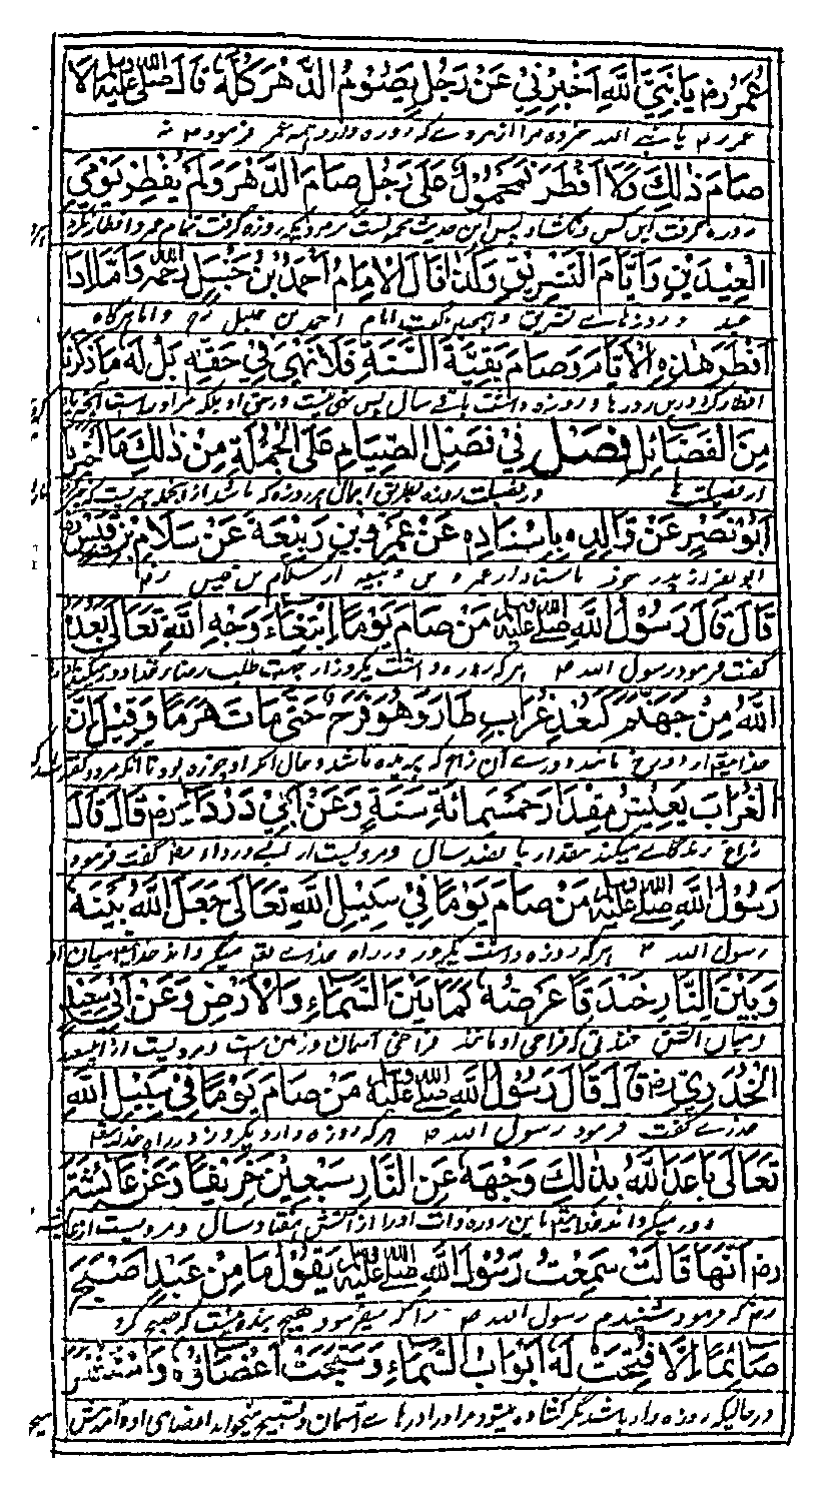 عُمَرُ رض يَا نَبِيَّ اللَّهِ اَخْبِرْنِيْ عَنْ رَجُلٍ يَصُوْمُ الدَّهْرَ كُلَّهُ قَالَ صلى الله عليه وسلم لَا
عمر رض یا نبی الله خبر ده مرا از مردے که روزه دارد همه عمر فرمود ص نه
صَامَ ذٰلِكَ وَلَا اَفْطَرَ فَمَحْمُوْلٌ عَلٰى رَجُلٍ صَامَ الدَّهْرَ وَلَمْ يُفْطِرْ يَوْمَيِ
روزه گرفت این کس و نکشاد پس این حدیث محمولست بر مردیکه روزه گرفت تمام عمر و افطار نکرد
الْعِيْدَيْنِ وَاَيَّامَ التَّشْرِيْقِ وَكَذَا قَالَ الْاِمَامُ اَحْمَدُ بْنُ حَنْبَلٍ رَحِمَهُ اللّٰهُ وَاَمَّا اِذَا
عید و روزهاے تشریق و همچنین گفت امام احمد بن حنبل رح و اما هرگاه
اَفْطَرَ هٰذِهِ الْاَيَّامَ وَصَامَ بَقِيَّةَ السَّنَةِ فَلَا نَهْيَ فِيْ حَقِّهٖ بَلْ لَهُ مَا ذَكَرْنَا
افطار کرد درین روزها و روزه داشت باقے سال پس نهی نیست در حق او بلکه مر او راست آنچه
مِنَ الْفَضَائِلِ فَصْلٌ فِيْ فَضْلِ الصِّيَامِ عَلَى الْجُمْلَةِ مِنْ ذٰلِكَ مَا اَخْبَرَنَا
از فضیلت ها در فضیلت روزه بطریق اجمال هر روزه که باشد از انجمله
اَبُوْ نَصْرٍ عَنْ وَّالِدِهٖ بِاِسْنَادِهٖ عَنْ عَمْرِو بْنِ رَبِيْعَةَ عَنْ سَلَامِ بْنِ قَيْسٍ
ابو نصر از پدر خود باسناد از عمرو بن ربیعه از سلام بن قیس رض
قَالَ قَالَ رَسُوْلُ اللَّهِ صلى الله عليه وسلم مَنْ صَامَ يَوْمًا ابْتِغَاءَ وَجْهِ اللَّهِ تَعَالٰى بَعَّدَهُ
گفت فرمود رسول الله ص هر که روزه داشت یکروز از جهت طلب رضاء خدا دور میکند
اللَّهُ مِنْ جَهَنَّمَ كَبُعْدِ غُرَابٍ طَارَ وَهُوَ فَرْخٌ حَتّٰى مَاتَ هَرَمًا وَقِيْلَ اِنَّ
خدایتعالی از دوزخ مانند دورے آن زاغ که پریده باشد و حال آنکه او چوزه بود تا آنکه مرد
الْغُرَابَ يَعِيْشُ مِقْدَارَ خَمْسِمِائَةِ سَنَةٍ وَعَنْ اَبِيْ دَرْدَاءَ رض قَالَ قَالَ
زاغ زندگانے میکند مقدار پانصد سال و مرویست از ابے درداء رض گفت فرمود
رَسُوْلُ اللَّهِ صلى الله عليه وسلم مَنْ صَامَ يَوْمًا فِيْ سَبِيْلِ اللَّهِ تَعَالٰى جَعَلَ اللَّهُ بَيْنَهُ
رسول الله ص هر که روزه داشت یکروز در راه خداے تعالی میگرداند خدایتعالی میان او
وَبَيْنَ النَّارِ خَنْدَقًا عَرْضُهُ كَمَا بَيْنَ السَّمَاءِ وَالْاَرْضِ وَعَنْ اَبِيْ سَعِيْدٍ
و میان آتش خندقی که فراخی او مانند فراخی آسمان و زمین ست و مرویست از ابیسعید
الْخُدْرِيِّ رض قَالَ قَالَ رَسُوْلُ اللَّهِ صلى الله عليه وسلم مَنْ صَامَ يَوْمًا فِيْ سَبِيْلِ اللَّهِ
خدرے گفت فرمود رسول الله ص هر که روزه دارد یکروز در راه خدایتعالی
تَعَالٰى بَاعَدَ اللَّهُ بِذٰلِكَ وَجْهَهُ عَنِ النَّارِ سَبْعِيْنَ خَرِيْفًا وَعَنْ عَائِشَةَ
دور میگرداند خدایتعالی باین روزه ذات او را از آتش هفتاد سال و مرویست از عایشه
رض اَنَّهَا قَالَتْ سَمِعْتُ رَسُوْلَ اللَّهِ صلى الله عليه وسلم يَقُوْلُ مَا مِنْ عَبْدٍ اَصْبَحَ
رض که فرمود شنیدم رسول الله ص را که میفرمود هیچ بنده نیست که صبح کرد
صَائِمًا اِلَّا فُتِحَتْ لَهُ اَبْوَابُ السَّمَاءِ وَسَبَّحَتْ اَعْضَاؤُهُ وَاسْتَغْفَرَ
در حالیکه روزه دار باشد مگر کشاده میشود مر او را درهاے آسمان و تسبیح میخواند اعضای او